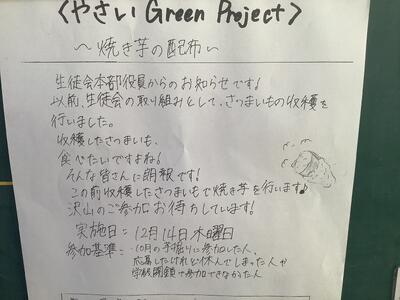 <やさい Green Project>
〜焼き芋の配布〜
生徒会本部役員からのお知らせです!
以前、生徒会の取り組みとして、さつまいもの収穫を
行いました。
収穫したさつまいも、
食べたいですよね!
そんな皆さんに朗報です!
この前収穫したさつまいもで焼き芋を行います♪
沢山のご参加お待ちしています!
実施日=12月14日木曜日
参加基準=・10月の芋掘りに参加した人、
応募したけれど休んでしまった人や
学級閉鎖で参加できなかった人